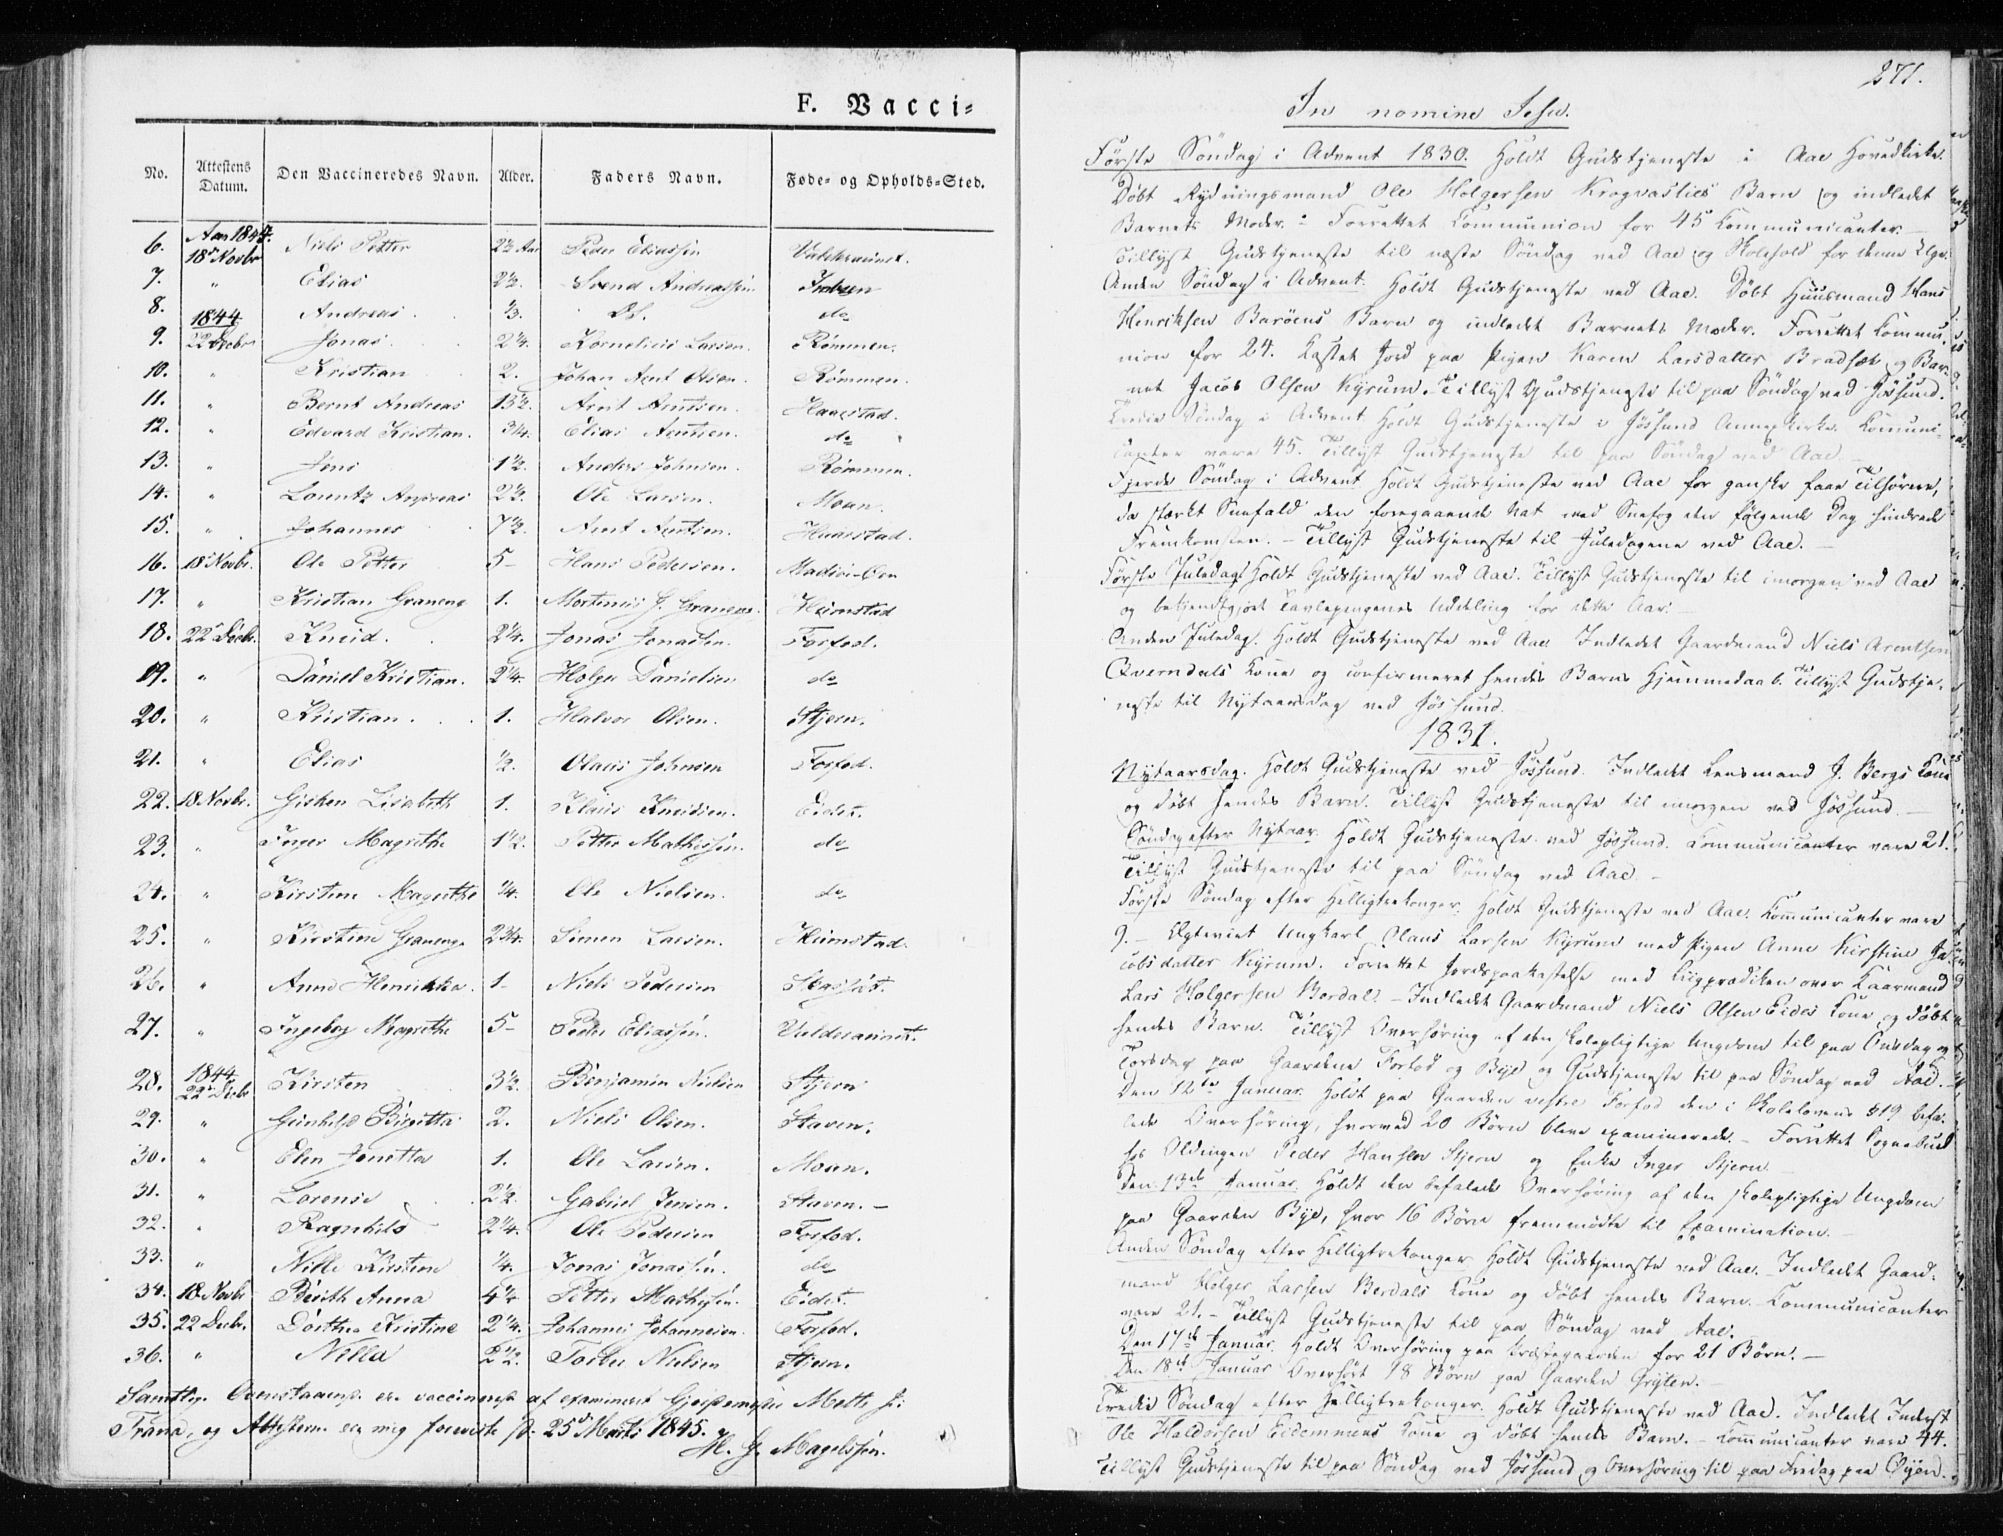 F. Vacci=
No. Attestens Datum. Den Vaccineredes Navn. Alder. Faders Navn. Føde- og Opholds-Sted.
6. Aar 1844. 18 Novbr Niels Petter 2½ Aar Peder Eliassen
7. " Elias 2½. Svend Andreassen
8. Andreas ⅓. Ds. do
9. 1844 22 Decbr Jonas 2¼. Kornelius Larsen Rømmen.
10. " Kristian 2. Johan Arnt Olsen. Rømmen.
11. " Bernt Andreas 13½. Arnt Arntsen. Haarstad.
12. " Edvard Kristian. ¾. Elias Arntsen. do
13. " Jens 1½. Anders Johnsen. Rømmen.
14. " Lorentz Andreas 2½. Ole Larsen. Moan.
15. " Johannes 7½. Arnt Arntsen. Haarstad.
16. 18 Novbr. Ole Petter 5- Hans Pedersen.
17. " Kristian Graneng 1. Mortinus J. Heimstad
18. 22 Decbr. Knud. 2¼. Jonas Jonassen. Forfod.
19. " Daniel Kristian. 2¼. Holger Danielsen do
20. " Kristian. 1. Halvor Olsen. Stjern.
21. " Elias ½. Olaus Johnsen Forfod.
22. 18 Novbr. Gjerken Lisabeth 1. Klaus Knudsen. Eidet.
23. " Inger Magrethe 1½. Petter Mathissen. do
24. " Kirstine Magrethe ¼. Ole Nielsen. do
25. " Kirstine Graneng 2¾. Simen Larsen. Heimstad.
26. " Anne Henrikka. 1- Niels Pedersen
27. " Ingeborg Magrethe 5- Peder Eliassen.
28. 1844 22 Decbr Kirsten 3½. Benjamin Nielsen Stjern
29. " Gunhild Birgitta 2. Niels Olsen. Staven.
30. " Elen Jonetta 1. Ole Larsen. Moan.
31. " Lorense 2½. Gabriel Jensen. Staven.-
32. " Ragnhild 2¼. Ole Pedersen Forfod.
33. " Nille Kirstine ¼. Jonas Jonassen. do
34. 18 Novbr Berith Anna 4½ Petter Mathissen. Eidet.
35. 22 Decbr. Dorthea Kristine 2¼. Johannes Johannesen. Forfod.
36. " Nilla 2½. Torber Nielsen Stjern.
Samtlige Ovenstaaende ere vaccinerede af examineret Gjordemoder Mette
Frana, og Attesterne ere mig foreviste d. 25 Marts 1845.
M. G. Magelssen.
271.
In nomine Jesu.
Første Søndag i Advent 1830. Holdt Gudstjeneste i Aae Hovedkirke.
Døbt Rydningsmand Ole Holgersen Krogvasliens Barn og indledet
Barnets Moder. Forrettet Communion for 45 Communicanter.
Tillyst Gudstjeneste til næste Søndag ved Aae og Skolehold for denne Uge.
Anden Søndag i Advent. Holdt Gudstjeneste ved Aae. Døbt Huusmand Hans
Henriksen Barøens Barn og indledet Barnets Moder. Forrettet Commu-
nion for 24. Kastet Jord paa Pigen Karen Larsdatter Bradsæt og Bar-
net Jacob Olsen Kyrum. Tillyst Gudstjeneste til paa Søndag ved Jøssund.
Tredie Søndag i Advent Holdt Gudstjeneste i Jøssund Annexkirke. Communi-
canter vare 45. Tillyst Gudstjeneste til paa Søndag ved Aae.
Fjerde Søndag i Advent Holdt Gudstjeneste ved Aae for ganske faae Tilhørere,
da stærkt Sneefald den foregaaende Nat med Sneefog den følgende Dag hindrede
Fremkomsten. - Tillyst Gudstjeneste til Juledagene ved Aae. -
Første Juledag. Holdt Gudstjeneste ved Aae. Tillyst Gudstjeneste til imorgen ved Aae
og bekjendtgjort Tavlepengenes Uddeling for dette Aar. -
Anden Juledag. Holdt Gudstjeneste ved Aae. Indledet Gaardmand Niels Arentsen
Qverndals Kone og confirmeret hendes Barns Hjemmedaab. Tillyst Gudstje-
neste til Nytaarsdag ved Jøssund.
1831.
Nytaarsdag. Holdt Gudstjeneste ved Jøssund. Indledet Lensmand J. Bergs Kone
og døbt hendes Barn. Tillyst Gudstjeneste til imorgen ved Jøssund. -
Søndag efter Nytaar. Holdt Gudstjeneste ved Jøssund. Communicanter vare 21.
Tillyst Gudstjeneste til paa Søndag ved Aae. -
Første Søndag efter Helligtrekonger. Holdt Gudstjeneste ved Aae. Communicanter vare
9. - Egteviet Ungkarl Olaus Larsen Kyrum med Pigen Anne Kirstine Ja-
cobsdatter Kyrum. Forrettet Jordspaakastelse med Liigprædiken over Kaarmand
Lars Holgersen Berdal. - Indledet Gaardmand Niels Olsen Eides Kone og døbt
hendes Barn. Tillyst Overhøring af den skolepligtige Ungdom til paa Onsdag og
Torsdag paa Gaardene Forfod og Bye og Gudstjeneste til paa Søndag ved Aae. -
Den 12te Januar. Holdt paa Gaarden vestre Forfod den i Skolelovens §19 befa-
lede Overhøring, hvorved 20 Børn bleve examinerede. - Forrettet Sognebud
hos Oldingen Peder Hansen Stjern og Enke Inger Stjern. -
Den 13de Januar. Holdt den befalede Overhøring af den skolepligtige Ungdom
paa Gaarden Bye, hvor 16 Børn fremmødte til Examination. -
Anden Søndag efter Helligtrekonger Holdt Gudstjeneste ved Aae. - Indledet Gaard-
mand Holger Larsen Berdals Kone og døbt hendes Barn. - Communicanter
vare 21. - Tillyst Gudstjeneste til paa Søndag ved Aae.
Den 17de Januar. Holdt Overhøring paa Præstegaarden for 21 Børn. -
Den 18de Januar Overhørt 18 Børn paa Gaarden Gryten. -
Tredie Søndag efter Helligtrekonger. Holdt Gudstjeneste ved Aae. Indledet Inderst
Ole Haldorsen Eidemmens Kone og døbt hendes Barn. - Communicanter vare 44.
Tillyst Gudstjeneste til paa Søndag ved Jøssund og Overhøring til paa Fredag paa Øyen.